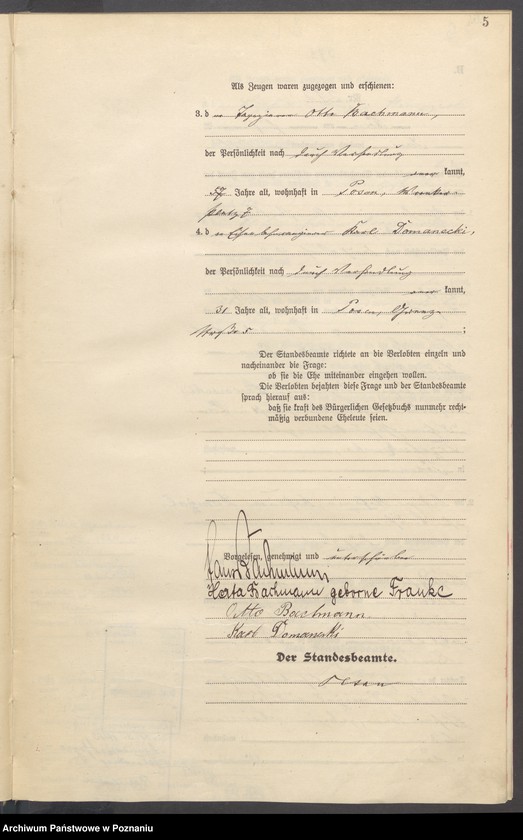 5
Als Zeugen waren zugezogen und erschienen:
3. d er Tapezierer Otto Bachmann,
der Persönlichkeit nach durch Verhandlung
aner kannt,
Jahre alt, wohnhaft in Posen,
platz
4. d er Karl Domanecki,
der Persönlichkeit nach durch Verhandlung
aner kannt,
31 Jahre alt, wohnhaft in Posen,
straße 5 ;
Der Standesbeamte richtete an die Verlobten einzeln und
nacheinander die Frage:
ob sie die Ehe miteinander eingehen wollen.
Die Verlobten bejahten diese Frage und der Standesbeamte
sprach hierauf aus:
daß sie kraft des Bürgerlichen Gesetzbuchs nunmehr recht-
mäßig verbundene Eheleute seien.
Vorgelesen, genehmigt und unterschrieben
Bachmann
Herta Bachmann geborne Franke
Otto Bachmann
Karl Domanecki
Der Standesbeamte.
Archiwum Państwowe w Poznaniu